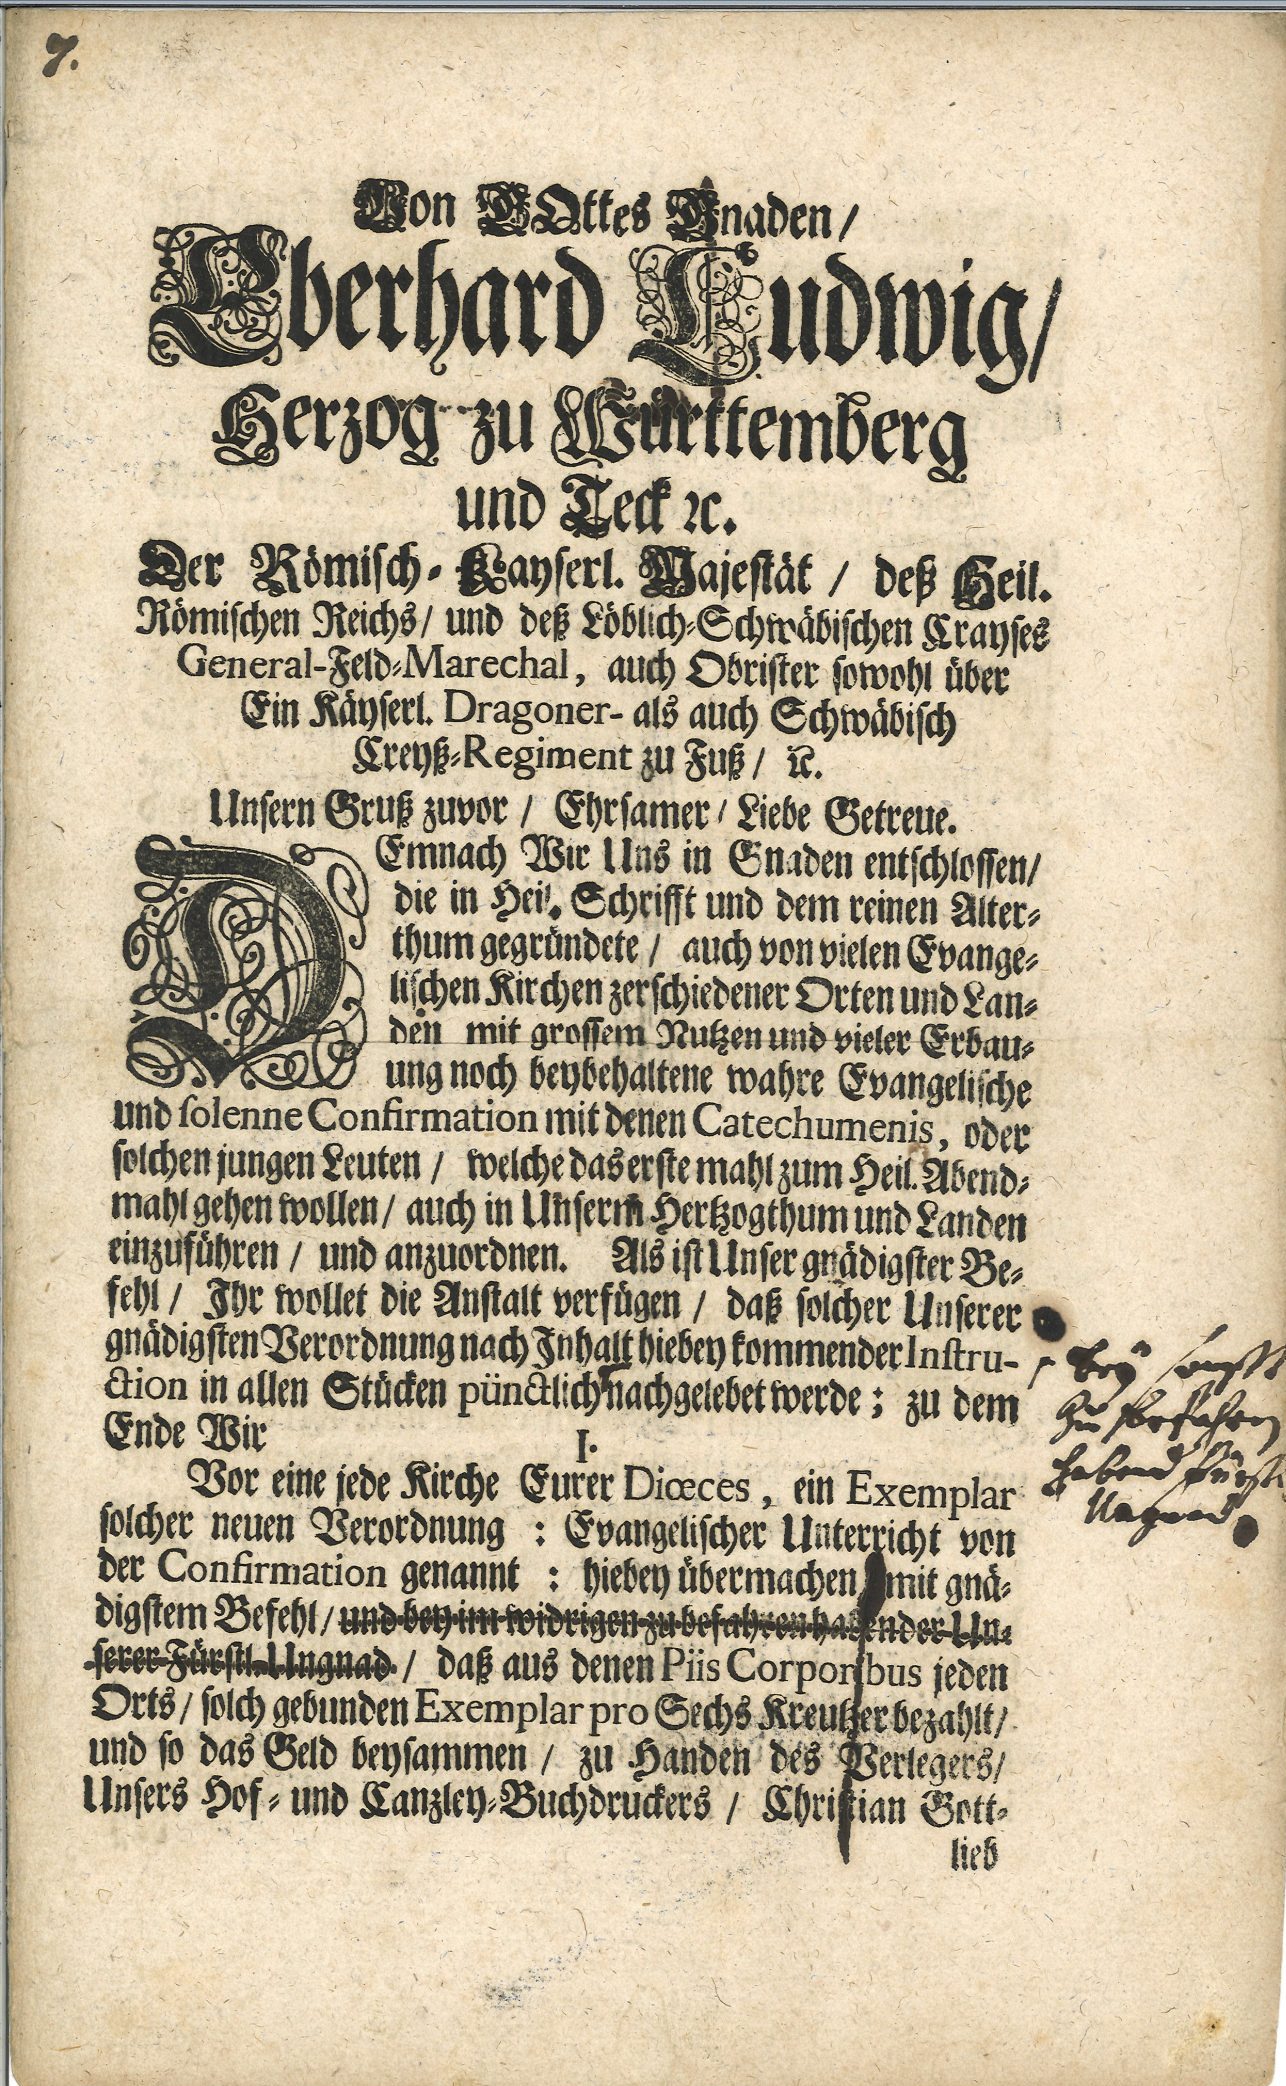 7.
Von GOttes Gnaden /
Eberhard Ludwig /
Herzog zu Würktemberg
und Teck ꝛc.
Der Römisch- Kayserl. Majestät / deß Heil.
Römischen Reichs / und deß Löblich-Schwäbischen Crayses
General-Feld-Marechal, auch Obrister sowohl über
Ein Käyserl. Dragoner- als auch Schwäbisch
Creyß-Regiment zu Fuß / ꝛc.
Unsern Gruß zuvor / Ehrsamer / Liebe Getreue.
DEmnach Wir Uns in Gnaden entschlossen /
die in Heil. Schrifft und dem reinen Alter-
thum gegründete / auch von vielen Evange-
lischen Kirchen zerschiedener Orten und Lan-
den mit grossem Nutzen und vieler Erbau-
ung noch beybehaltene wahre Evangelische
und solenne Confirmation mit denen Catechumenis, oder
solchen jungen Leuten / welche das erste mahl zum Heil. Abend-
mahl gehen wollen / auch in Unserm Hertzogthum und Landen
einzuführen / und anzuordnen. Als ist Unser gnädigster Be-
fehl / Ihr wollet die Anstalt verfügen / daß solcher Unserer
gnädigsten Verordnung nach Inhalt hiebey kommender Instru-
ction in allen Stücken pünctlich nachgelebet werde ; zu dem
Ende Wir
I.
Vor eine jede Kirche Eurer Diœces, ein Exemplar
solcher neuen Verordnung : Evangelischer Unterricht von
der Confirmation genannt : hiebey übermachen mit gnä-
digstem Befehl / und bey im widrigen zu befahren habender Un-
serer Fürstl. Ungnad / daß aus denen Piis Corporibus jeden
Orts / solch gebunden Exemplar pro Sechs Kreutzer bezahlt /
und so das Geld beysammen / zu Handen des Verlegers /
Unsers Hof- und Canzley-Buchdruckers / Christian Gott-
lieb
bey sonst
zu befahren
habend fürstl.
Ungnad